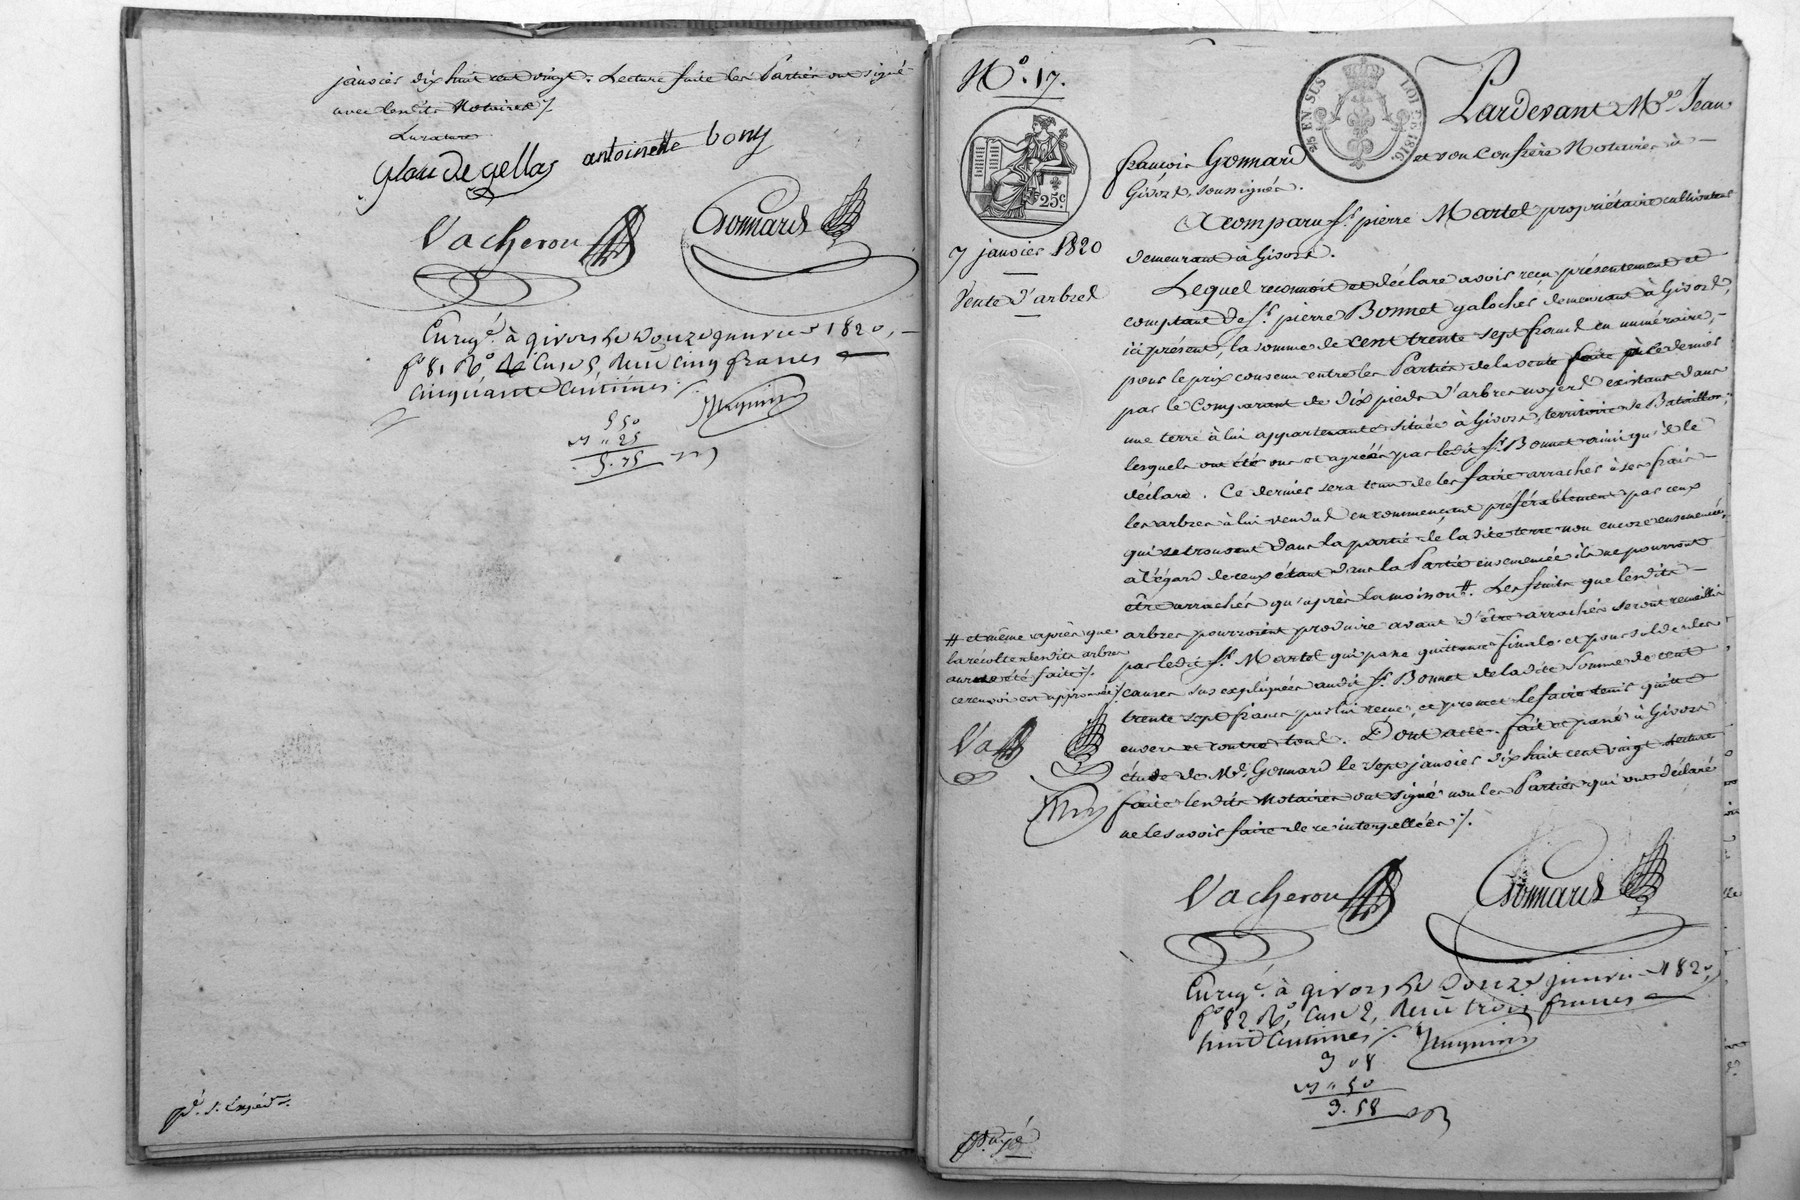 janvier dix huit cent vingt. Lecture faite les Parties ont signé
avec lesdits Notaires /.
Claude gellas antoinette bony
Vacheron Gonnard
Enregé. à givors le Douze janvier 1820,
fo 81 Ro Case 5, Reçu cinq francs
cinquante Centimes /.
5 50
25
5.75
No. 17.
25c
7 janvier 1820
Vente d'arbres
LOI DE 1816
Pardevant Me Jean
françois Gonnard et son Confrère Notaires à
Givors, soussignés.
A comparu sr. pierre Martel propriétaire cultivateur
demeurant à Givors.
Lequel reconnoit et déclare avoir reçu présentement et
comptant de sr. pierre Bonnet galocher demeurant à Givors,
ici présent, la somme de cent trente sept francs en numéraire,
pour le prix convenu entre les Parties de la vente faite à ce dernier
par le Comparant de dix pieds d'arbres noyers existant dans
une terre à lui appartenante située à Givors, territoire de Bataillon,
lesquels ont été vus et agréés par ledit sr. Bonnet ainsi qu'il le
déclare. Ce dernier sera tenu de les faire arracher à ses frais
les arbres à lui vendus en commençant préférablement par ceux
qui se trouvent dans la partie de la dite terre non encore ensemencée,
à l'égard de ceux étant dans la Partie ensemencée ils ne pourront
être arrachés qu'après la moisson #. Les fruits que lesdits
arbres pourroient produire avant d'être arrachés seront recueillis
par ledit sr. Martel qui passe quittance finale et pour solde des
causes sus expliquées audit sr. Bonnet de ladite somme de cent
trente sept francs par lui reçue, et promet le faire tenir quitte
envers et contre tous. Dont acte. fait et passé à Givors
étude de Me. Gonnard le sept janvier dix huit cent vingt lecture
faite lesdits Notaires ont signé non les Parties qui ont déclaré
ne le savoir faire de ce interpellées /.
# et même après que
la récolte desdits arbres
aura été faite /.
ce renvoi est approuvé /.
Va
Vacheron Gonnard
Enregé. à givors le Douze janvier 1820,
fo 82 Ro, Case 2, Reçu trois francs
huit Centimes /.
3 08
50
3.58